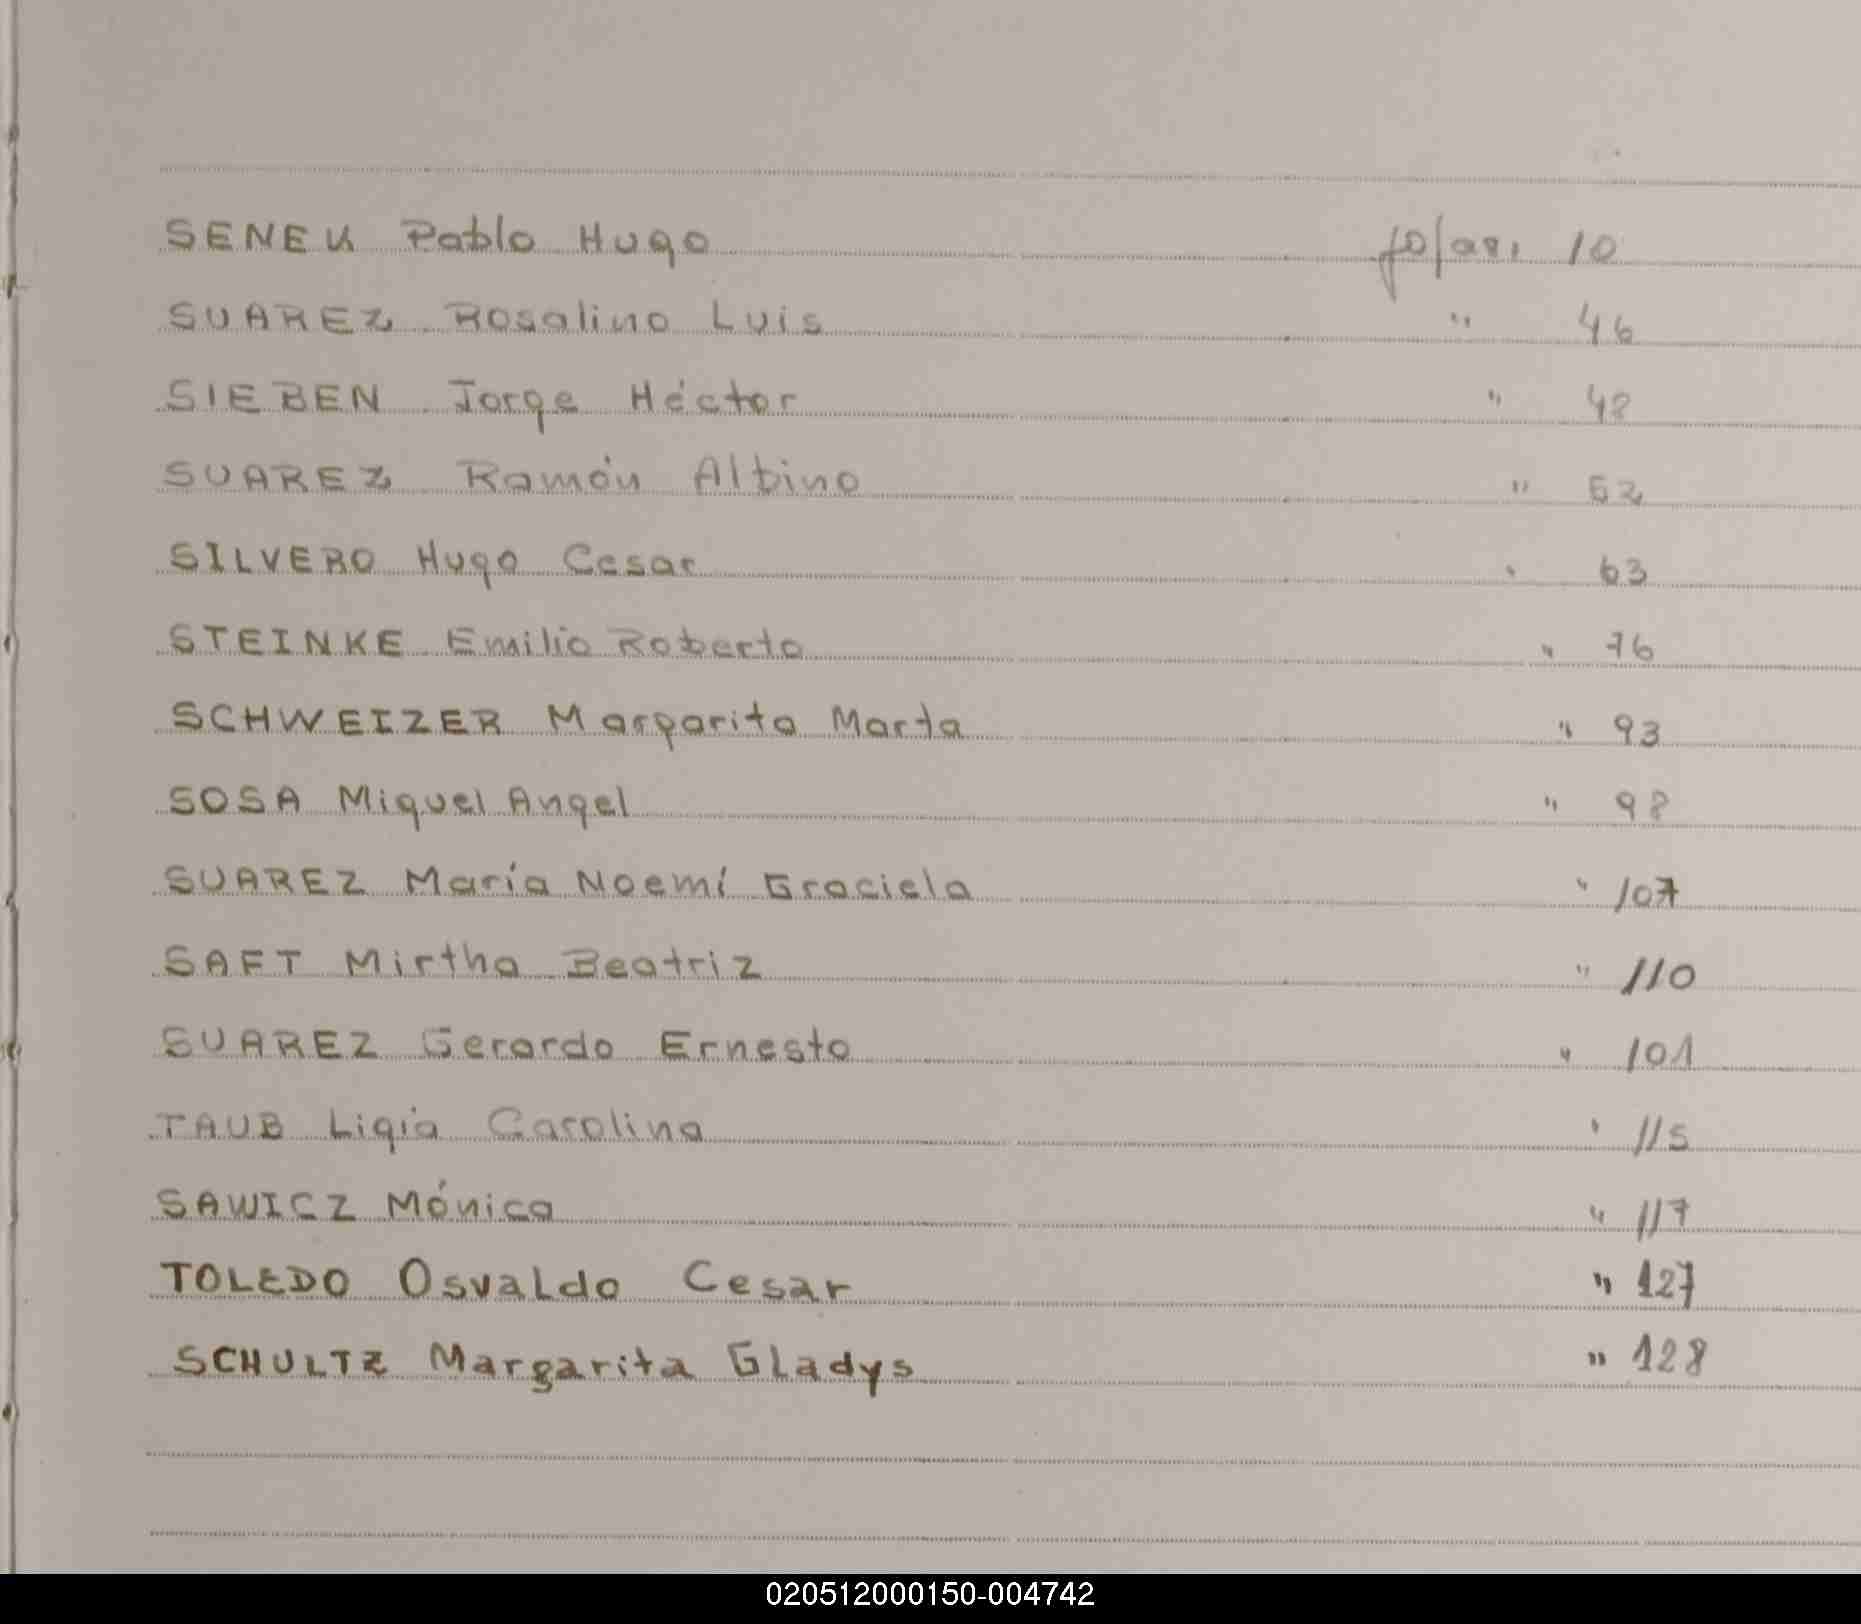 SENEK Pablo Hugo fojas. 10
SUAREZ Rosalino Luis " 46
SIEBEN Jorge Héctor " 48
SUAREZ Ramón Albino " 52
SILVERO Hugo Cesar " 63
STEINKE Emilio Roberto " 76
SCHWEIZER Margarita Marta " 93
SOSA Miguel Angel " 98
SUAREZ María Noemí Graciela " 107
SAFT Mirtha Beatriz " 110
SUAREZ Gerardo Ernesto " 101
TAUB Ligia Carolina " 115
SAWICZ Mónica " 117
TOLEDO Osvaldo Cesar " 127
SCHULTZ Margarita Gladys " 128
020512000150-004742